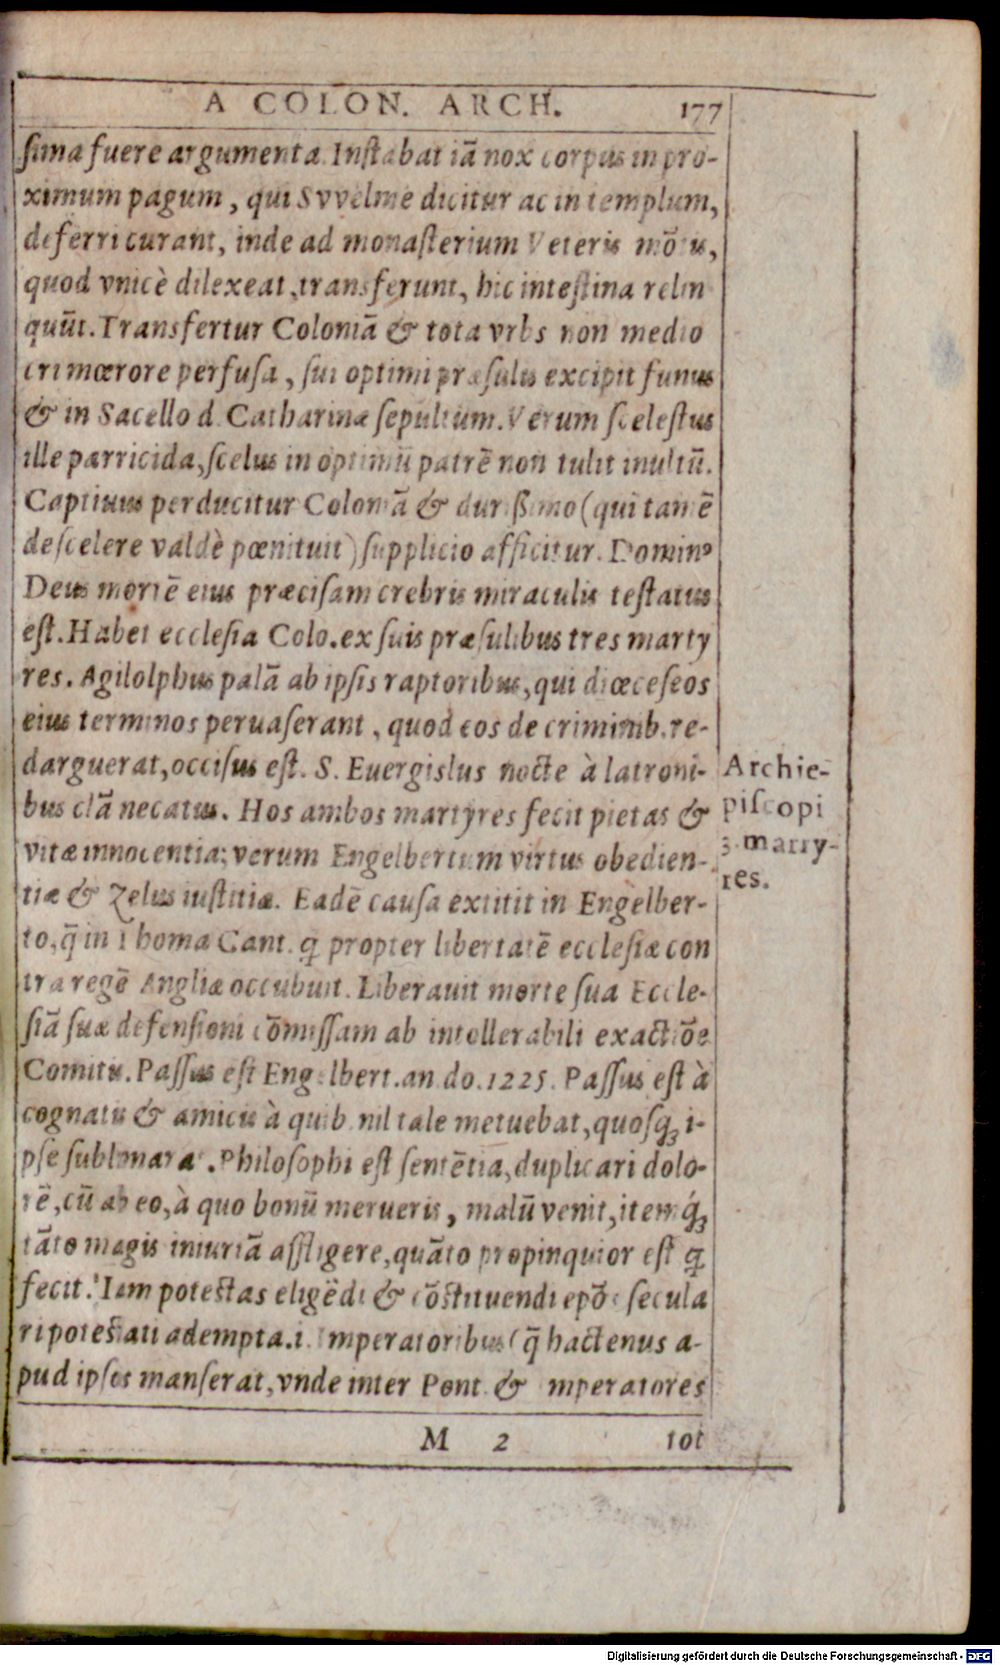 A COLON. ARCH. 177
sima fuere argumenta. Instabat iã nox corpus in pro-
ximum pagum, qui Svvelme dicitur ac in templum,
deferri curant, inde ad monasterium Veteris mõtis,
quod vnicè dilexeat, transferunt, hic intestina relin
quũt. Transfertur Coloniã & tota vrbs non medio
cri mœrore perfusa, sui optimi præsulis excipit funus
& in Sacello d. Catharinæ sepultum. Verum scelestus
ille parricida, scelus in optimũ patrẽ non tulit inultũ.
Captiuus perducitur Coloniã & durißimo (qui tamẽ
de scelere valdè pœnituit) supplicio afficitur. Dominꝰ
Deus mortẽ eius præcisam crebris miraculis testatus
est. Habet ecclesia Colo. ex suis præsulibus tres marty
res. Agilolphus palã ab ipsis raptoribus, qui diœceseos
eius terminos peruaserant, quod eos de criminib. re-
darguerat, occisus est. S. Euergislus nocte à latroni-
bus clã necatus. Hos ambos martyres fecit pietas &
vitæ innocentia: verum Engelbertum virtus obedien-
tiæ & Zelus iustitiæ. Eadẽ causa extitit in Engelber-
to, q̃ in Thoma Cant. ꝗ propter libertatẽ ecclesiæ con
tra regẽ Angliæ occubuit. Liberauit morte sua Eccle-
siã suæ defensioni cõmissam ab intollerabili exactiõe
Comitis. Passus est Engelbert. an. do. 1225. Passus est à
cognatis & amicis à quib. nil tale metuebat, quosq́ʒ i-
pse sublimarat. Philosophi est sentẽtia, duplicari dolo-
rẽ, cũ ab eo, à quo bonũ merueris, malũ venit, itemq́ʒ
tãto magis iniuriã affligere, quãto propinquior est ꝗ
fecit. Iam potestas eligẽdi & cõstituendi epõs secula
ri potestati adempta .i. Imperatoribus (q̃ hactenus a-
pud ipsos manserat, vnde inter Pont. & mperatores
M 2 tot
Archie-
piscopi
3. marty-
res.
Digitalisierung gefördert durch die Deutsche Forschungsgemeinschaft - DFG